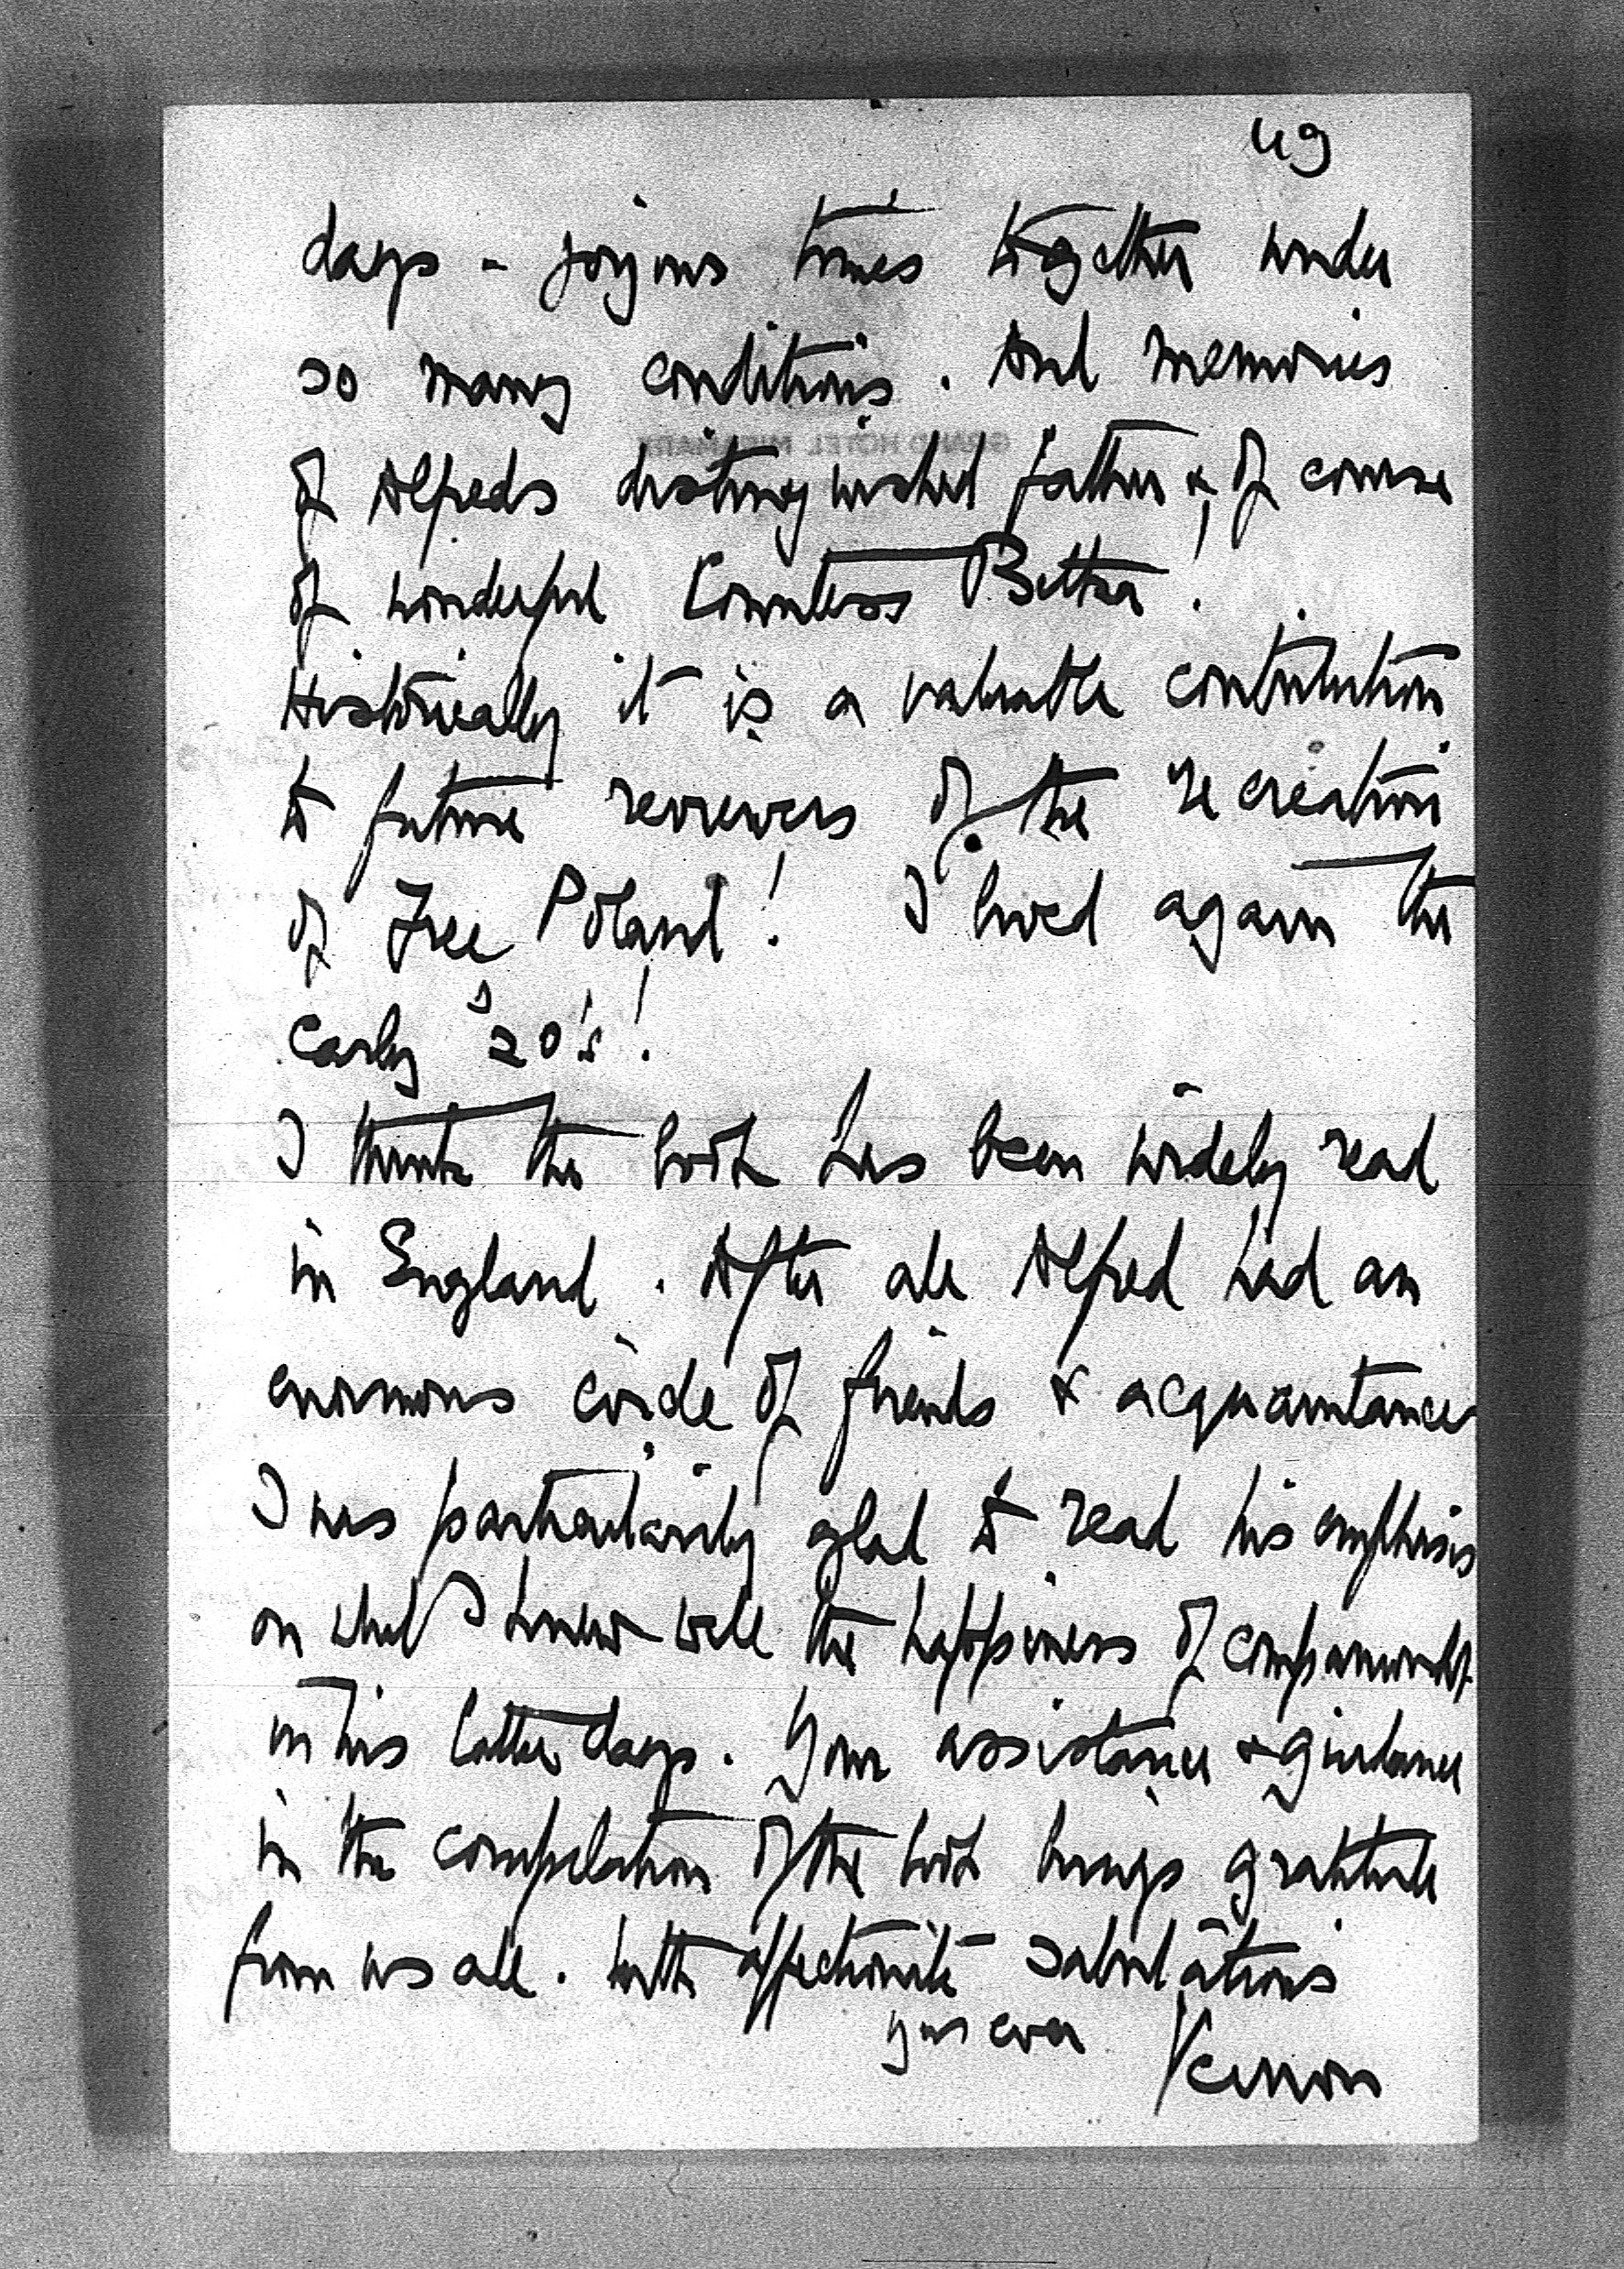 49
days - joyous times together under
so many conditions. And memories
of Alfreds distinguished father &, of course
of wonderful Countess Betka!
Historically it is a valuable contribution
to future reviewers of the recreation
of Free Poland! I lived again the
early '20's!
I think the book has been widely read
in England. After all Alfred had an
enormous circle of friends & acquaintances
I was particularly glad to read his emphasis
on what I knew well the happiness of companionship
in his latter days. Your assistance & guidance
in the compilation of the book brings gratitude
from us all. With affectionate salutations
yrs ever Vernon